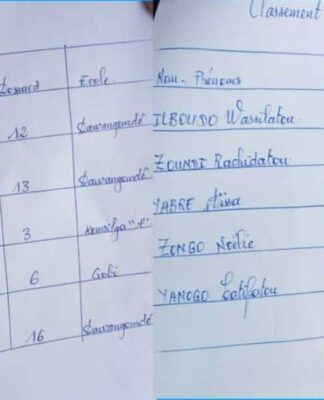 Classement
Dossard Ecole Nom - Prénoms
12 Sawangondé ILBOUDO Wassilatou
13 Sawangondé ZOUNDI Rachidatou
3 Komsilga "A" YABRE Aïssa
6 Gobi ZONGO Noëlie
16 Sawangondé YANOGO Latifatou